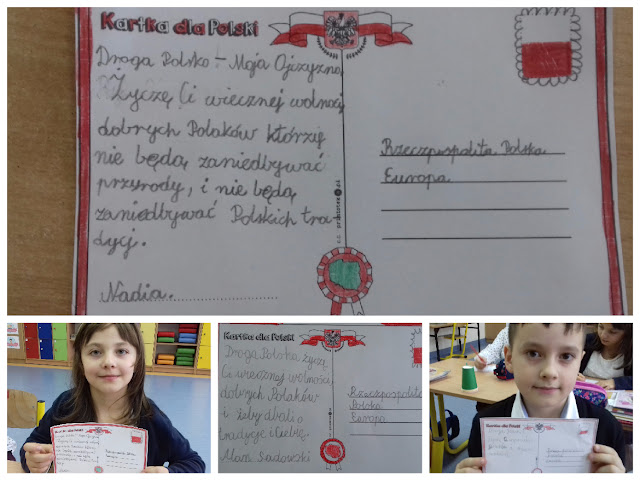 Kartka dla Polski
Droga Polsko – Moja Ojczyzno
Życzę Ci wiecznej wolności
dobrych Polaków którzy
nie będą zaniedbywać
przyrody, i nie będą
zaniedbywać Polskich tra-
dycj.
Nadia.
Rzeczpospolita Polska
Europa
Kartka dla Polski
Droga Polsko życzę
Ci wiecznej wolności
dobrych Polaków
i żeby dbali o
tradycje i
Alan Sadowski
Rzeczpospolita
Polska
Europa
Kartka dla Polski